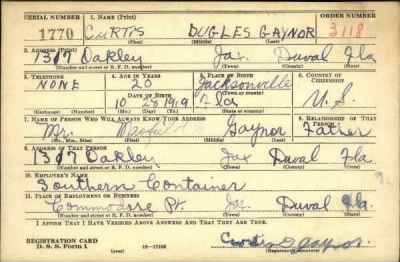 SERIAL NUMBER 1. NAME (Print) ORDER NUMBER
1770 CURTIS DUGLES GAYNOR 3118
(First) (Middle) (Last)
2. ADDRESS (Print)
1307 Oakley Jax Duval Fla
(Number and street or R. F. D. number) (Town) (County) (State)
3. TELEPHONE 4. AGE IN YEARS 5. PLACE OF BIRTH 6. COUNTRY OF CITIZENSHIP
NONE 20 Jacksonville
DATE OF BIRTH (Town or county)
10 28 1919 Fla U. S.
(Exchange) (Number) (Mo.) (Day) (Yr.) (State or country)
7. NAME OF PERSON WHO WILL ALWAYS KNOW YOUR ADDRESS 8. RELATIONSHIP OF THAT PERSON
Mr. Gaynor Father
(Mr., Mrs., Miss) (First) (Middle) (Last)
9. ADDRESS OF THAT PERSON
1307 Oakley Jax Duval Fla.
(Number and street or R. F. D. number) (Town) (County) (State)
10. EMPLOYER'S NAME
Southern Container
11. PLACE OF EMPLOYMENT OR BUSINESS
Commodore Pt. Jax Duval Fla.
(Number and street or R. F. D. number) (Town) (County) (State)
I AFFIRM THAT I HAVE VERIFIED ABOVE ANSWERS AND THAT THEY ARE TRUE.
REGISTRATION CARD
D. S. S. Form 1 (over) 16—17105
(Registrant's signature)